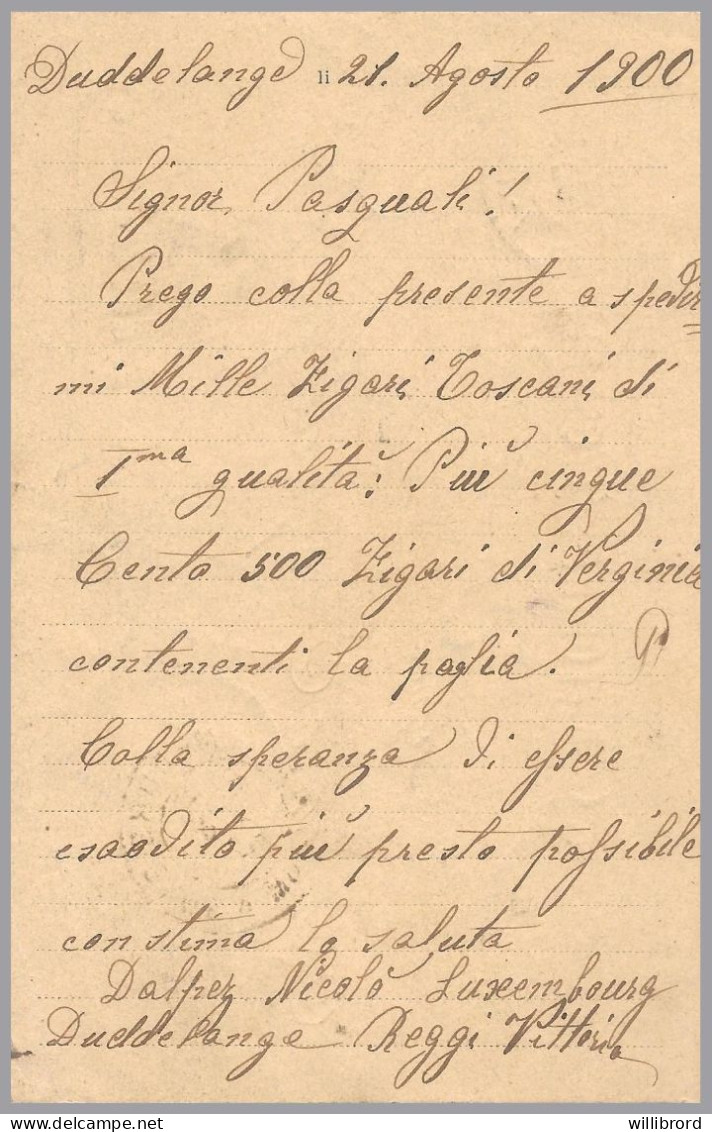 Duddelange li 21. Agosto 1900
Signor Pasquali!
Prego colla presente a spedir
mi Mille Zigari Toscani di
1ma qualità: Più cinque
Cento 500 Zigari di Verginia
contenenti la paglia.
Colla speranza di essere
esaodito più presto possibile
con stima la saluta
Dalpez Nicolò Luxembourg
Duddelange Reggi Vittorio
willibrord